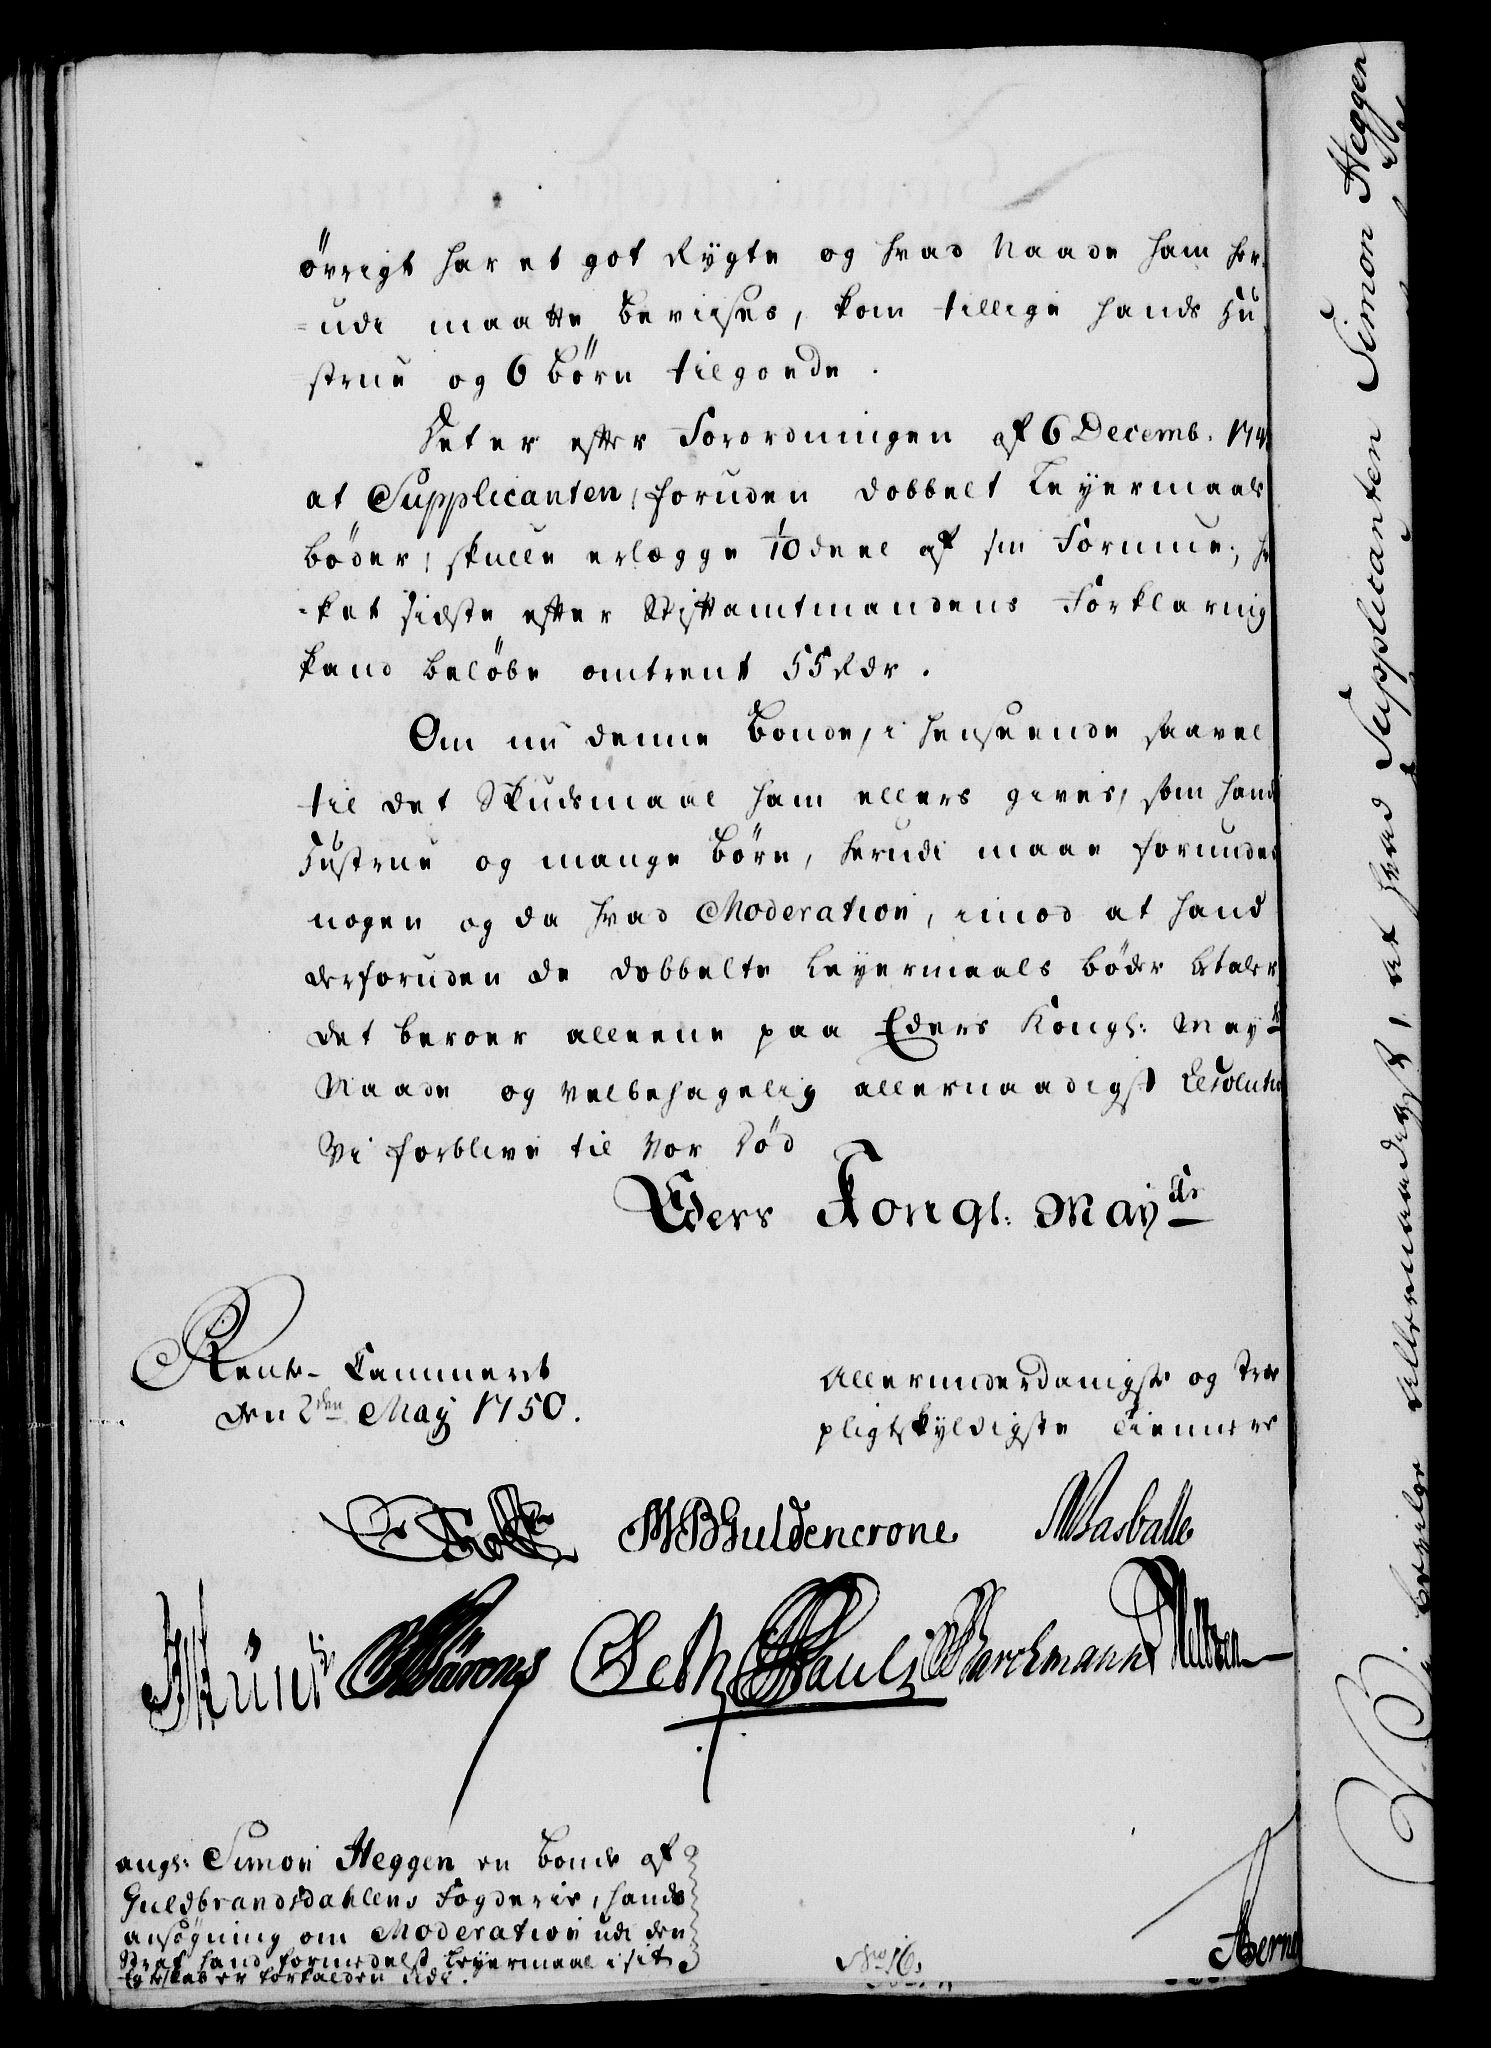 övrigt har et got Rygte og hvad Naade ham her-
=udi maatte beviises, kom tillige hands Hu
strue og 6 börn tilgoede.
Det er efter Forordningen af 6 Decemb. 174
at Supplicanten, foruden dobbelt Leyermaals
böder, skulle erlægge 1/10 deel af sin Formue,
-ket sidste efter Stiftamtmandens Forklaring
kand belöbe omtrent 55 Rdr.
Om nu denne Bonde, i henseende saavel
til det Skudsmaal ham ellers gives, som hands
Hustrue og mange Börn, herudi maae forundes
nogen og da hvad Moderation, imod at hand
derforuden de dobbelte Leyermaals böder betaler
det beroer alleene paa Eders Kongl: May:ts
Naade og velbehagelig allernaadigst Resolution
Vi forblive til Vor Död
Eders Kongl: May:ts
Rente-Cammeret
den 2den May 1750.
Allerunderdanigste og Troe
pligtskyldigste Tiennere
MBGuldencrone Masballe
Seth Pauli Barchmann
angl: Simon Heggen en Bonde af
Guldbrandsdahlens Fogderie, hands
ansögning om Moderation udi den
Straf hand formedelst Leyermaal i sit
Egteskab er forfalden udi.
No 16.
det hvad Supplicanten Simon Heggen
allernaadigst